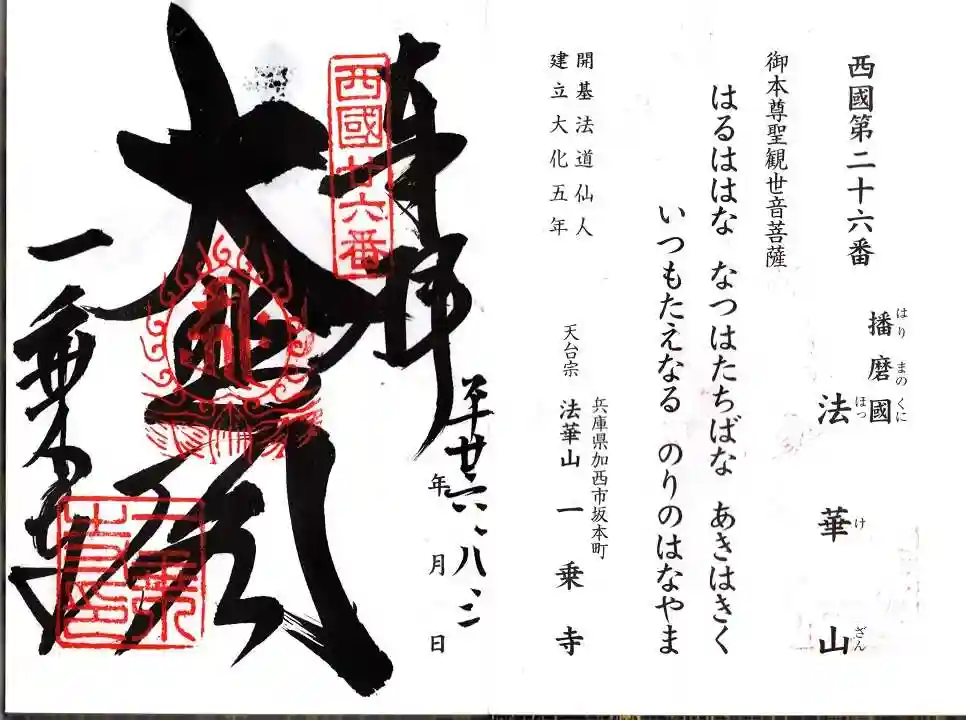 西國第二十六番
播磨國
はりまのくに
法華山
ほっけざん
御本尊聖観世音菩薩
はるははな なつはたちばな あきはきく
いつもたえなる のりのはなやま
開基法道仙人
建立大化五年
兵庫県加西市坂本町
天台宗 法華山 一乗寺
奉拝
平廿六、八、二
年 月 日
西國廿六番
大悲殿
一乗寺
一乗寺印